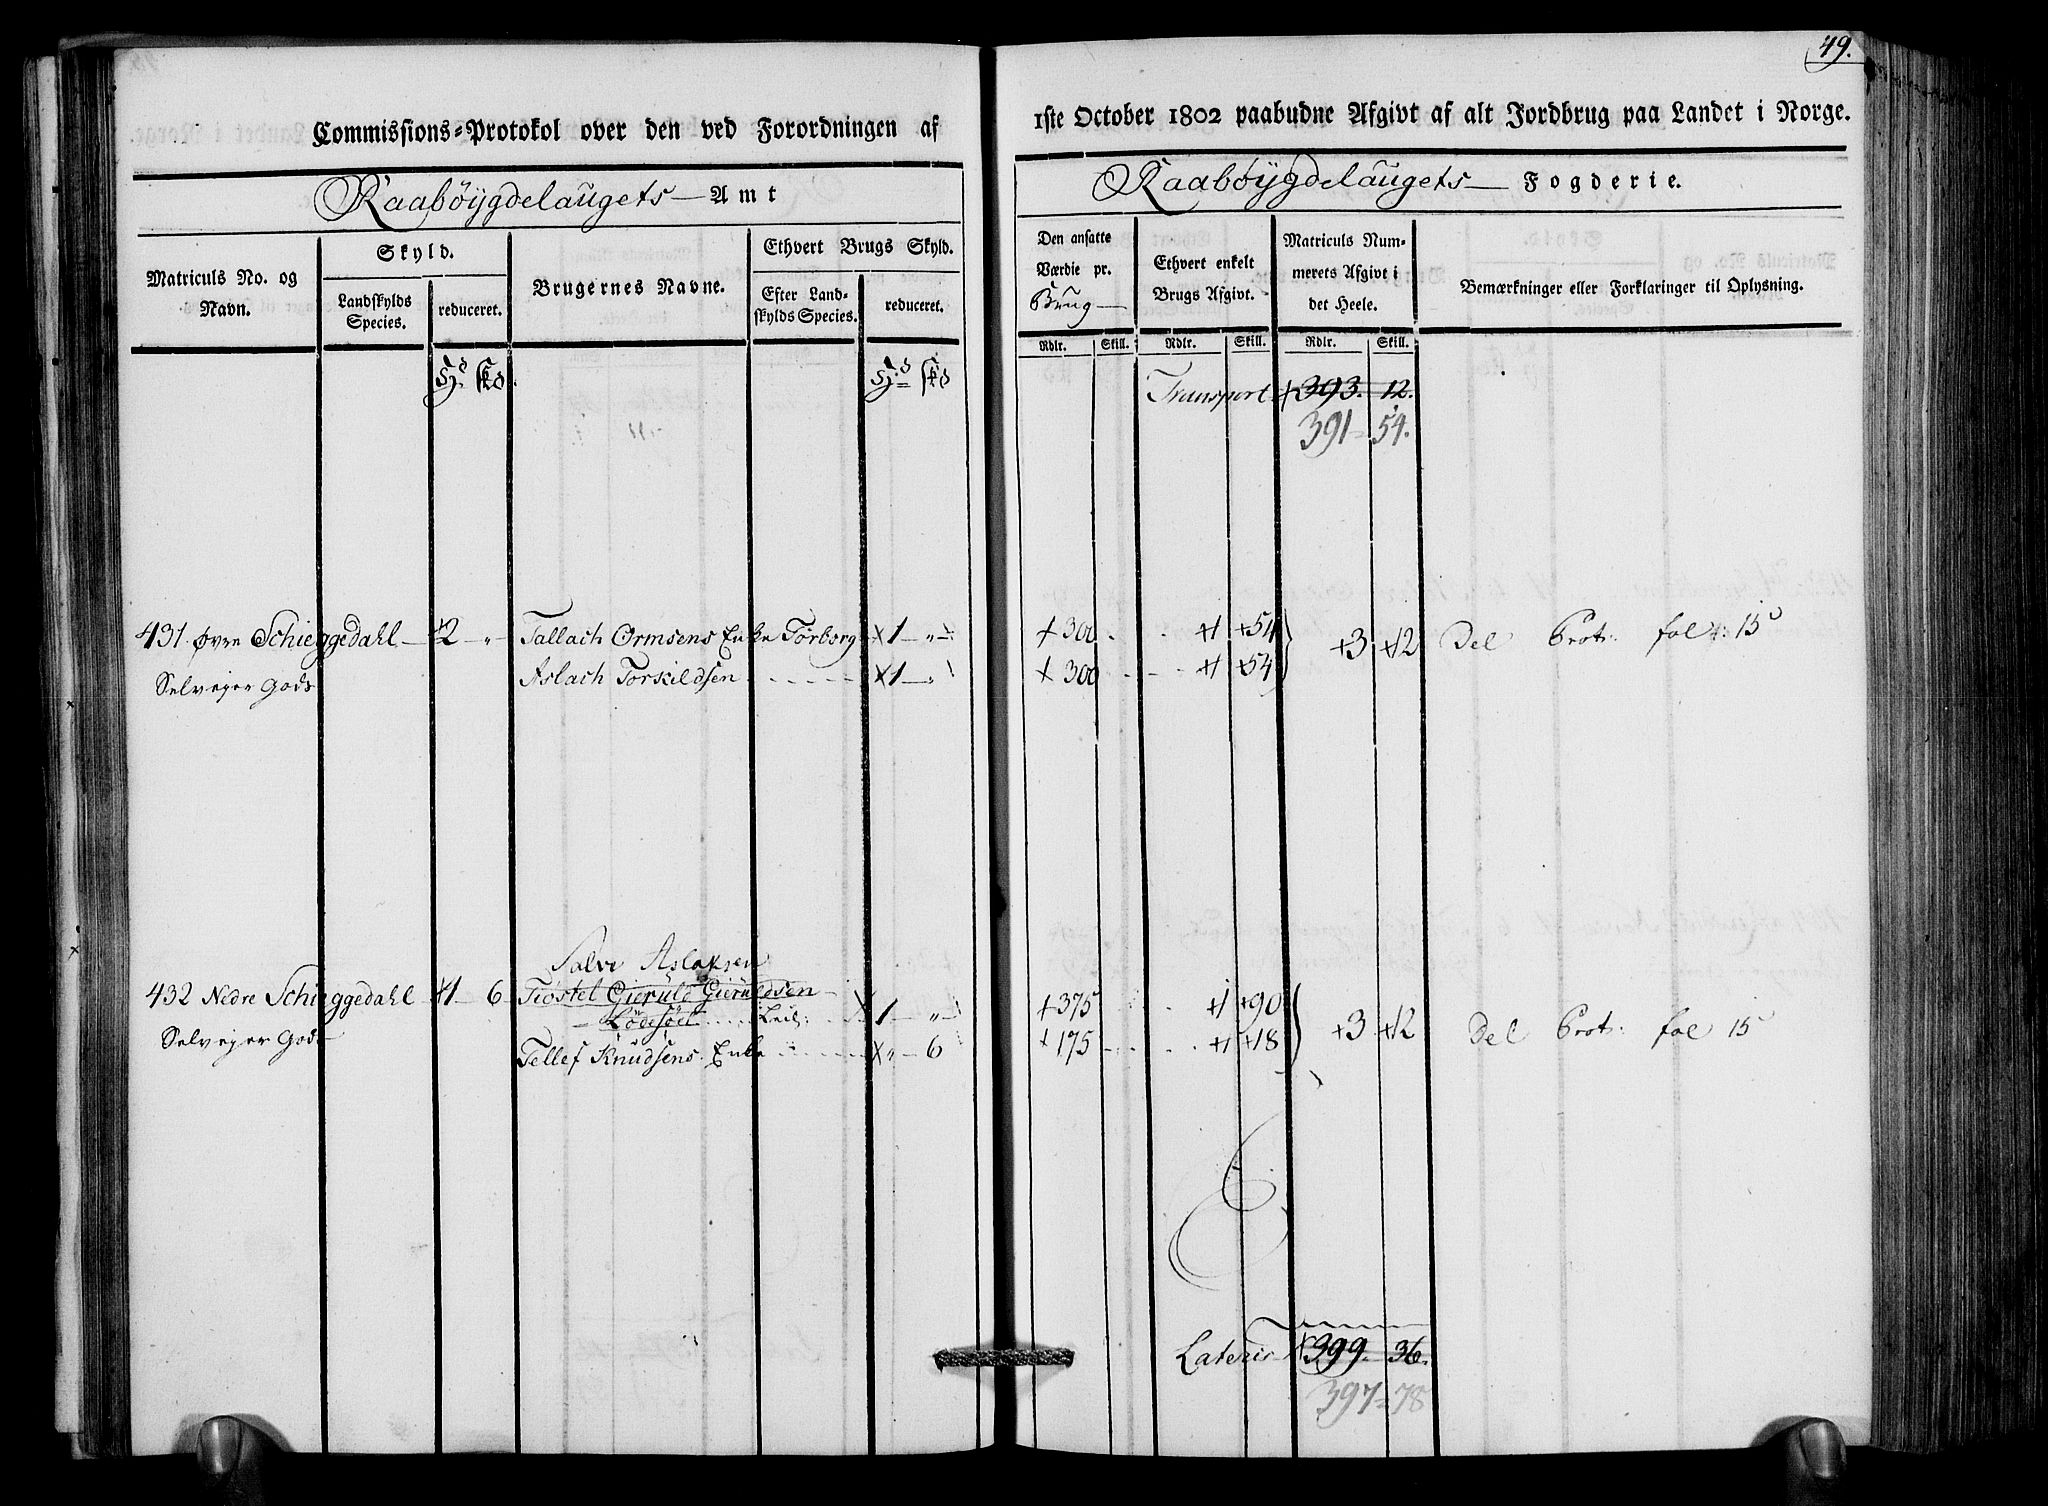 49.
Commissions-Protokol over den ved Forordningen af
1ste October 1802 paabudne Afgivt af alt Jordbrug paa Landet i Norge.
Raabøÿgdelaugets Amt
Raabøÿgdelaugets Fogderie.
Matriculs No. og Navn.
Skyld.
Landskylds Species.
reduceret.
Brugernes Navne.
Ethvert Brugs Skyld.
Efter Landskylds Species.
reduceret.
Den ansatte Værdie pr. Brug
Ethvert enkelt Brugs Afgivt.
Matriculs Nummerets Afgivt i det Heele.
Bemærkninger eller Forklaringer til Oplysning.
Rdlr. Skill. Rdlr. Skill. Rdlr. Skill.
Transport 393. 12.
391 = 54.
431 Øvre Schieggedahl 2 " Tallach Ormsens Enke Torborg 1 " 300 1 54 3 12 Del Prot: fol: 15
Selvejer Gods Aslach Torskildsen 1 " 300 1 54
Salve Aslaksen
432 Nedre Schieggedahl 1 6 Tiøstel Gieruld Gieruldsen
Lødesøel Leil: 1 " 375 1 90 3 12 Del Prot: fol 15
Selvejer Gods
Tellef Knudsens Enke " 6 175 1 18
Lateris 399. 36.
397 = 78